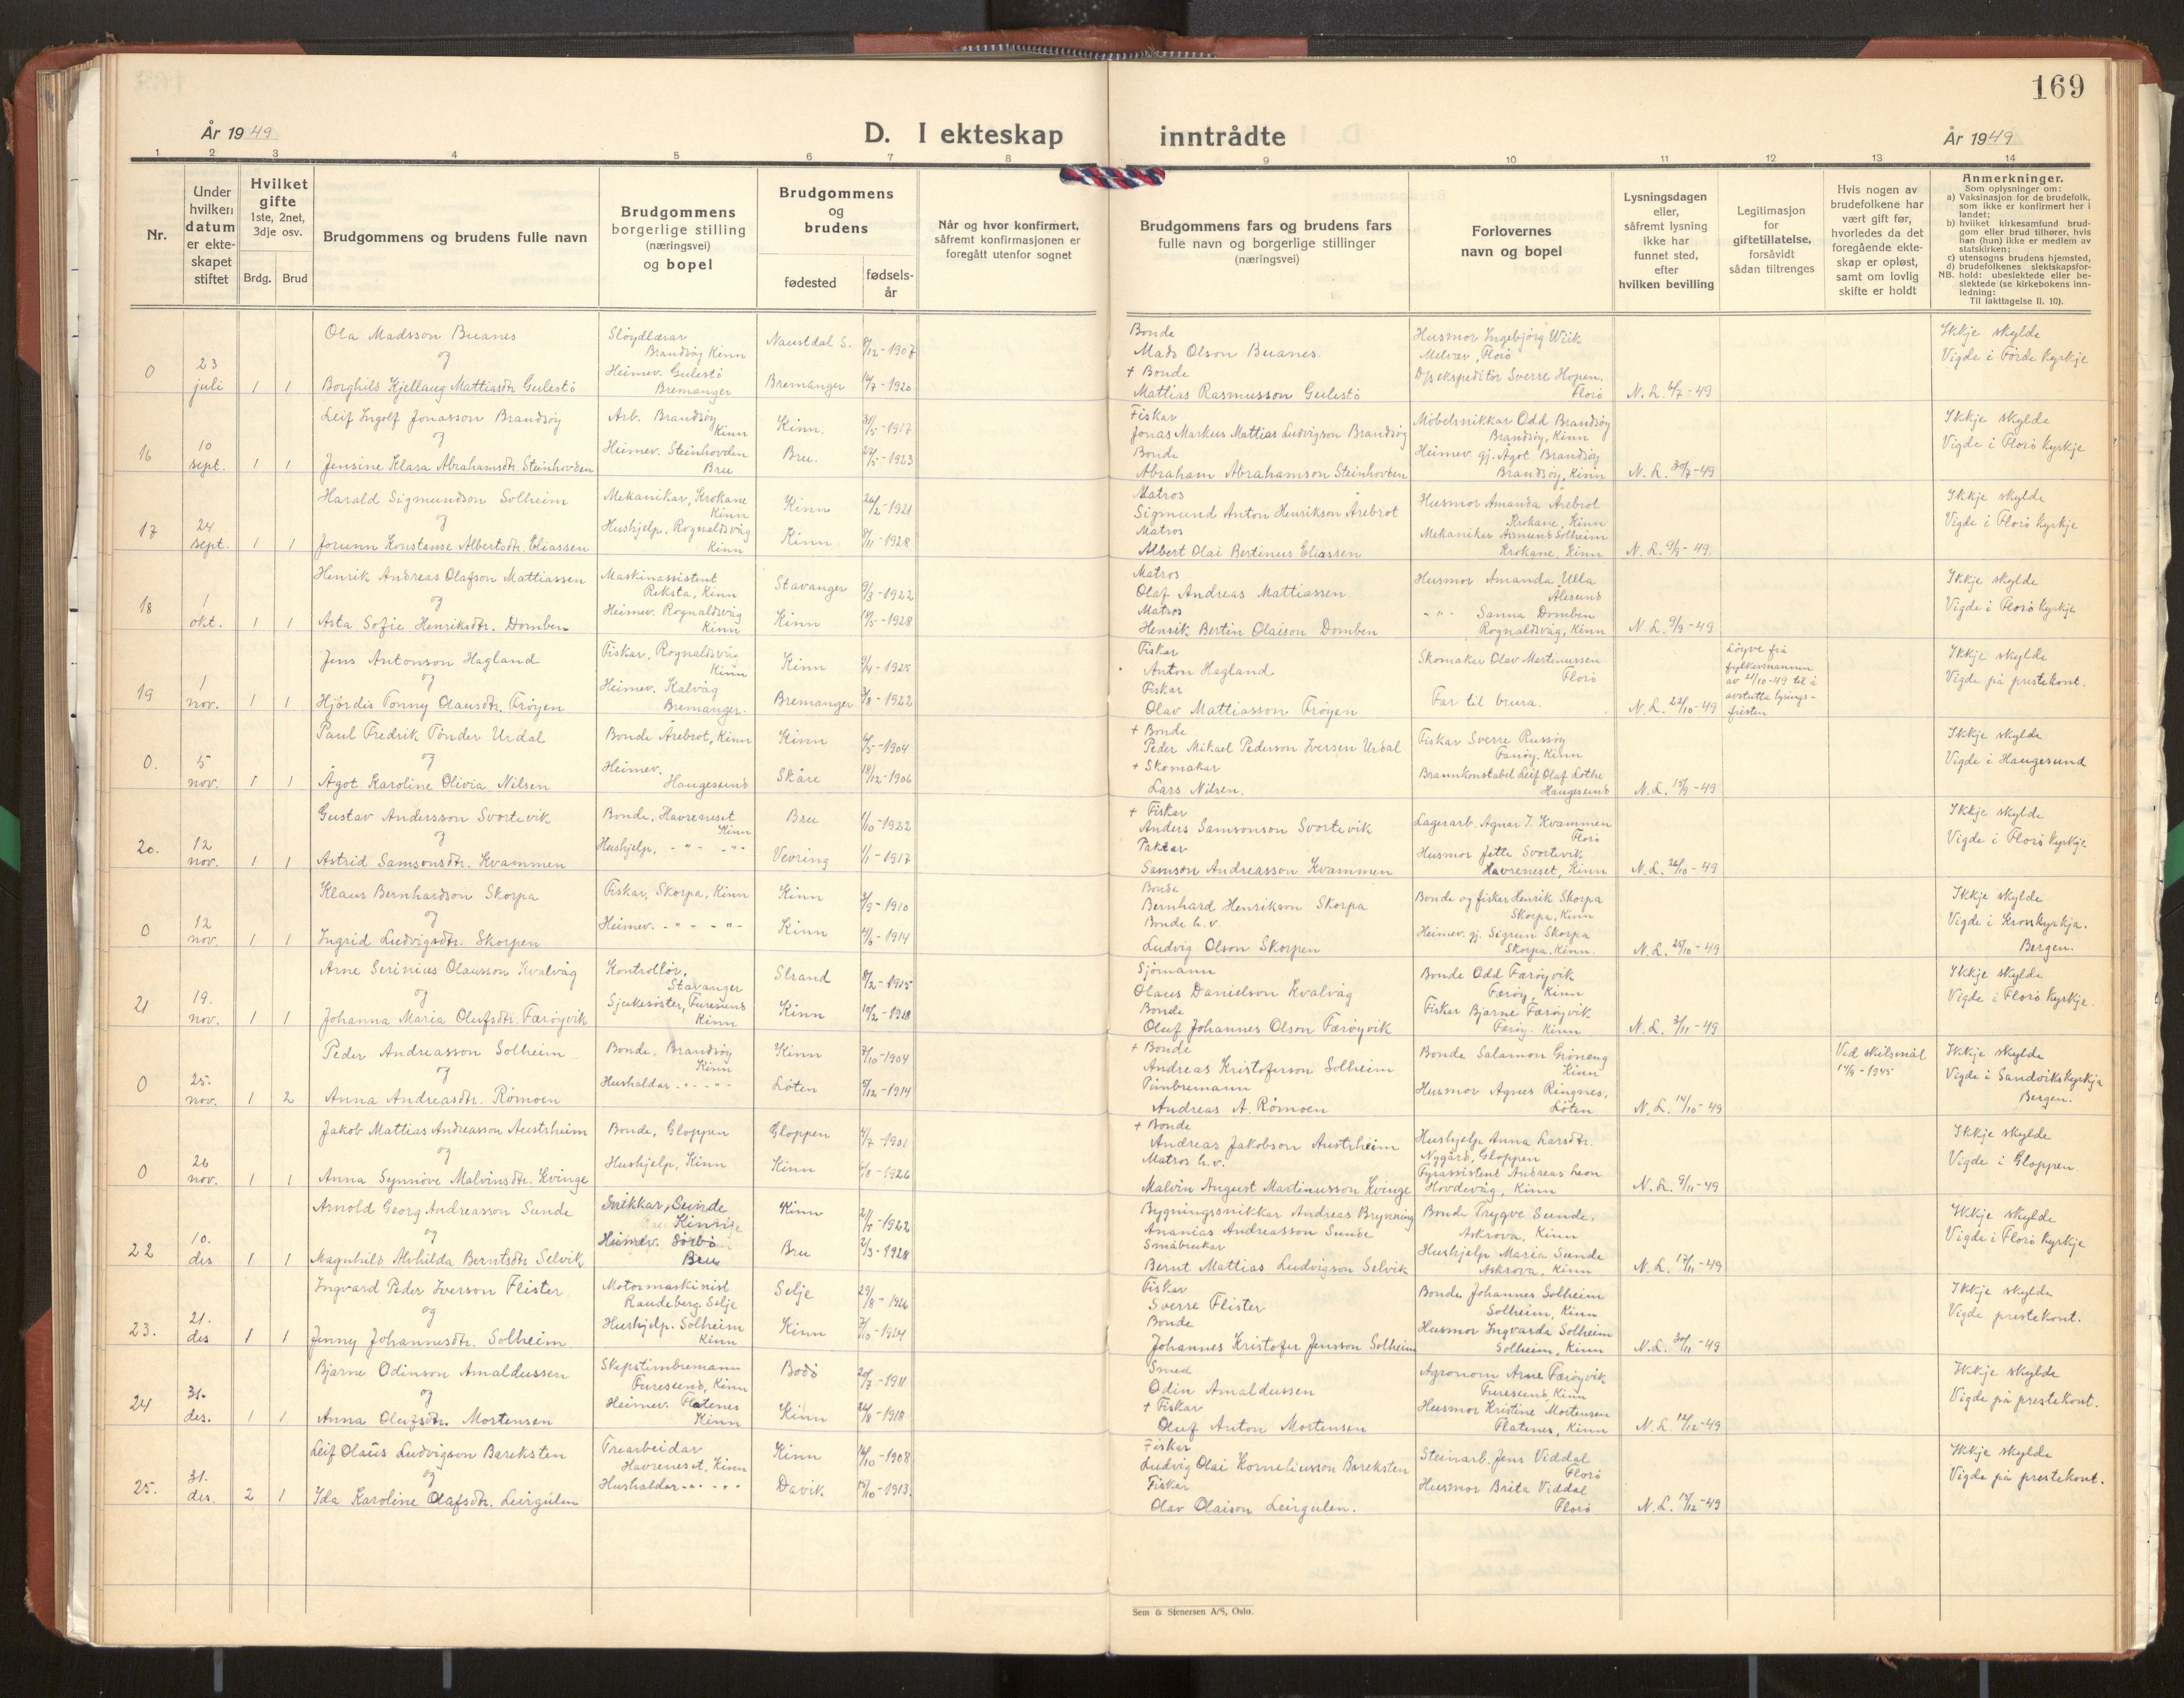 169
År 1949
D. I ekteskap inntrådte
År 1949
1 2 3 4 5 6 7 8 9 10 11 12 13 14
Nr.
Under
hvilken
datum
er ekte-
skapet
stiftet
Hvilket
gifte
1ste, 2net,
3dje osv.
Brdg. Brud
Brudgommens og brudens fulle navn
Brudgommens
borgerlige stilling
(næringsvei)
og bopel
Brudgommens
og
brudens
fødested
fødsels-
år
Når og hvor konfirmert,
såfremt konfirmasjonen er
foregått utenfor sognet
Brudgommens fars og brudens fars
fulle navn og borgerlige stillinger
(næringsvei)
Forlovernes
navn og bopel
Lysningsdagen
eller,
såfremt lysning
ikke har
funnet sted,
efter
hvilken bevilling
Legitimasjon
for
giftetillatelse,
forsåvidt
sådan tiltrenges
Hvis nogen av
brudefolkene har
vært gift før,
hvorledes da det
foregående ekte-
skap er opløst,
samt om lovlig
skifte er holdt
Anmerkninger.
Som oplysninger om:
a) Vaksinasjon for de brudefolk,
som ikke er konfirmert her i
landet;
b) hvilket kirkesamfund brud-
gom eller brud tilhører, hvis
han (hun) ikke er medlem av
statskirken;
c) utensogns brudens hjemsted,
d) brudefolkenes slektskapsfor-
NB. hold: ubeslektede eller be-
slektede (se kirkebokens inn-
ledning:
Til iakttagelse II. 10).
0
23
juli
1 1
Ola Madsson Buanes
og
Borghild Kjellaug Mattiasdtr. Gulestø
Sløydlærar
Brandsøy Kinn
Heimev. Gulestø
Bremanger
Naustdal S. 8/12-1907
Bremanger 14/7-1920
Bonde
Mads Olson Buanes.
+ Bonde
Mattias Rasmusson Gulestø
Husmor Ingebjørg Wiik
Melvær, Florø
D/sekspeditør Sverre Hopen.
Florø
N. L. 6/7-49
Ikkje skylde
Vigde i Førde kyrkje
16
10
sept.
1 1
Leif Ingolf Jonasson Brandsøy
og
Jensine Klara Abrahamsdtr. Steinhovden
Arb. Brandsøy
Kinn
Heimev. Steinhovden
Bru
Kinn. 31/5-1917
Bru. 27/5-1923
Fiskar
Jonas Markus Mattias Ludvigson Brandsøy
Bonde
Abraham Abrahamson Steinhovden
Møbelsnikkar Odd Brandsøy
Brandsøy, Kinn
Heimev. gj. Ågot Brandsøy
Brandsøy, Kinn
N. L. 30/7-49
Ikkje skylde
Vigde i Florø kyrkje
17
24
sept.
1 1
Harald Sigmundson Solheim
og
Jorunn Konstanse Albertsdtr. Eliassen
Mekanikar, Krokane
Kinn
Hushjelp, Rognaldsvåg
Kinn
Kinn 26/2-1921
Kinn 8/11-1928
Matros
Sigmund Anton Henrikson Årebrot
Matros
Albert Olai Bertinus Eliassen
Husmor Amanda Årebrot
Krokane, Kinn
Mekanikar Asmund Solheim
Krokane, Kinn
N. L. 9/9-49.
Ikkje skylde
Vigde i Florø kyrkje
18
1
okt.
1 1
Henrik Andreas Olafson Mattiassen
og
Asta Sofie Henriksdtr. Domben
Maskinassistent
Reksta, Kinn
Heimev. Rognaldsvåg
Kinn
Stavanger 9/3-1922
Kinn 18/5-1928
Matros
Olaf Andreas Mattiassen
Matros
Henrik Bertin Olaison Domben
Husmor Amanda Ulla
Ålesund
-"- Sanna Domben
Rognaldsvåg, Kinn
N. L. 9/9-49
Ikkje skylde
Vigde i Florø kyrkje
19
1
nov.
1 1
Jens Antonson Hagland
og
Hjørdis Tonny Olausdtr. Frøyen
Fiskar, Rognaldsvåg
Kinn
Heimev. Kalvåg
Bremanger.
Kinn 9/4-1925
Bremanger 3/8-1922
Fiskar
Anton Hagland
Fiskar
Olav Mattiasson Frøyen
Skomakar Olav Martinussen
Florø
Far til brura.
N. L. 22/10-49
Løyve frå
fylkesmannen
av 21/10-49 til å
avstutta lysings-
fristen
Ikkje skylde
Vigde på prestekont.
0.
5
nov.
1 1
Paul Fredrik Tønder Urdal
og
Ågot Karoline Olivia Nilsen
Bonde Årebrot, Kinn
Heimev.
Haugesund
Kinn 6/5-1904
Skåre 18/12-1906
+ Bonde
Peder Mikael Pederson Iversen Urdal
+ Skomakar
Lars Nilsen.
Fiskar Sverre Russøy
Fanøy, Kinn
Brannkonstabel Leif Olaf Lothe
Haugesund
N. L. 15/9-49
Ikkje skylde
Vigde i Haugesund
20.
12
nov.
1 1
Gustav Andersson Svortevik
og
Astrid Samsonsdtr. Kvammen
Bonde, Havreneset
Kinn
Hushjelp, -"- -"-
Bru 1/10-1922
Vevring 1/1-1917
+ Fiskar
Anders Samsonson Svortevik
Paktar
Samson Andreasson Kvammen
Lagerarb. Agnar J. Kvammen
Florø
Husmor Jette Svortevik
Havreneset, Kinn
N. L. 26/10-49
Ikkje skylde
Vigde i Florø kyrkje
0
12
nov.
1 1
Klaus Bernhardson Skorpa
og
Ingrid Ludvigsdtr. Skorpen
Fiskar, Skorpa, Kinn
Heimev. -"- -"-
Kinn 3/9-1910
Kinn 4/6-1914
Bonde
Bernhard Henrikson Skorpa
Bonde h.v.
Ludvig Olson Skorpen
Bonde og fiskar Henrik Skorpa
Skorpa, Kinn
Heimev. gj. Sigrun Skorpa
Skorpa, Kinn.
N. L. 28/10-49
Ikkje skylde
Vigde i Krosskyrkja.
Bergen.
21
19.
nov.
1 1
Arne Serinius Olausson Kvalvåg
og
Johanna Maria Olufsdtr. Færøyvik
Kontrollør,
Stavanger
Sjukesøster, Furesund
Kinn
Strand 8/2-1915
Kinn 10/2-1918
Sjømann
Olaus Danielson Kvalvåg
Bonde
Oluf Johannes Olson Færøyvik
Bonde Odd Færøyvik
Færøy, Kinn
Fiskar Bjarne Færøyvik
Færøy. Kinn
N. L. 3/11-49
Ikkje skylde
Vigde i Florø kyrkje.
0
25.
nov.
1 2
Peder Andreasson Solheim
og
Anna Andreasdtr. Rømoen
Bonde, Brandsøy
Kinn
Hushaldar -"- -"-
Kinn 7/10-1904
Løten 5/12-1914
+ Bonde
Andreas Kristoferson Solheim
Tømbremann
Andreas A. Rømoen
Bonde Salamon Grøneng
Kinn
Husmor Agnes Ringnes,
Løten
N. L. 14/10-49
Ved skilsmål
14/9-1945
Ikkje skylde
Vigde i Sandvikskyrkja
Bergen.
0
26
nov.
1 1
Jakob Mattias Andreasson Austrheim
og
Anna Synnøve Malvinsdtr. Kvinge
Bonde, Gloppen
Hushjelp, Kinn
Gloppen 4/7-1901
Kinn 5/8-1926
+ Bonde
Andreas Jakobson Austrheim
Matros h.v.
Malvin August Martinusson Kvinge
Hushjelp Anna Larsdtr.
Nygård, Gloppen
Fyrassistent Andreas Leon
Hovdevåg, Kinn
N. L. 9/11-49
Ikkje skylde
Vigde i Gloppen
22
10.
des
1 1
Arnold Georg Andreasson Sunde
og
Magnhild Alvhilda Berntsdtr Selvik
Snikkar, Sunde
Kinn
Heimev. Sørbø
Bru
Kinn 21/7-1922
Bru 2/3-1928
Bygningssnikkar Andreas Brynning
Ananias Andreasson Sunde
Småbrukar
Bernt Mattias Ludvigson Selvik
Bonde Trygve Sunde,
Askrova, Kinn
Hushjelp Maria Sunde
Askrova, Kinn
N. L. 17/11-49
Ikkje skylde
Vigde i Florø kyrkje
23.
21.
des
1 1
Ingvard Peder Iverson Flister
og
Jenny Johannesdtr. Solheim
Motormaskinist
Raudeberg, Selje
Hushjelp. Solheim
Kinn
Selje 29/8-1926
Kinn 7/10-1924
Fiskar
Sverre Flister
Bonde
Johannes Kristofer Jensson Solheim
Bonde Johannes Solheim
Solheim, Kinn
Husmor Ingvarda Solheim
Solheim, Kinn
N.L. 30/11-49
Ikkje skylde
Vigde prestekont.
24
31.
des.
1 1
Bjarne Odinson Arnaldussen
og
Anna Olufsdtr. Mortensen
Skipstimbremann
Furesund, Kinn
Heimev. Flatenes
Kinn
Bodø 20/7-1911
Kinn 26/8-1918
Smed
Odin Arnaldussen
+ Fiskar
Oluf Anton Mortensen
Agronom Arne Færøyvik
Furesund Kinn
Husmor Kristine Mortensen
Flatenes, Kinn
N. L. 12/12-49
Ikkje skylde
Vigde på prestekont.
25.
31.
des.
2 1
Leif Olaus Ludvigson Bareksten
og
Ida Karoline Olafsdtr. Leirgulen
Trearbeidar
Havreneset, Kinn
Hushaldar -"- -"-
Kinn 16/10-1908
Davik. 15/10-1913.
Fiskar
Ludvig Olai Korneliusson Bareksten
Fiskar
Olav Olaison Leirgulen.
Steinarb. Jens Viddal
Florø
Husmor Brita Viddal
Florø
N. L. 15/12-49
Ikkje skylde
Vigde på prestekont.
Sem & Stenersen A/S, Oslo.